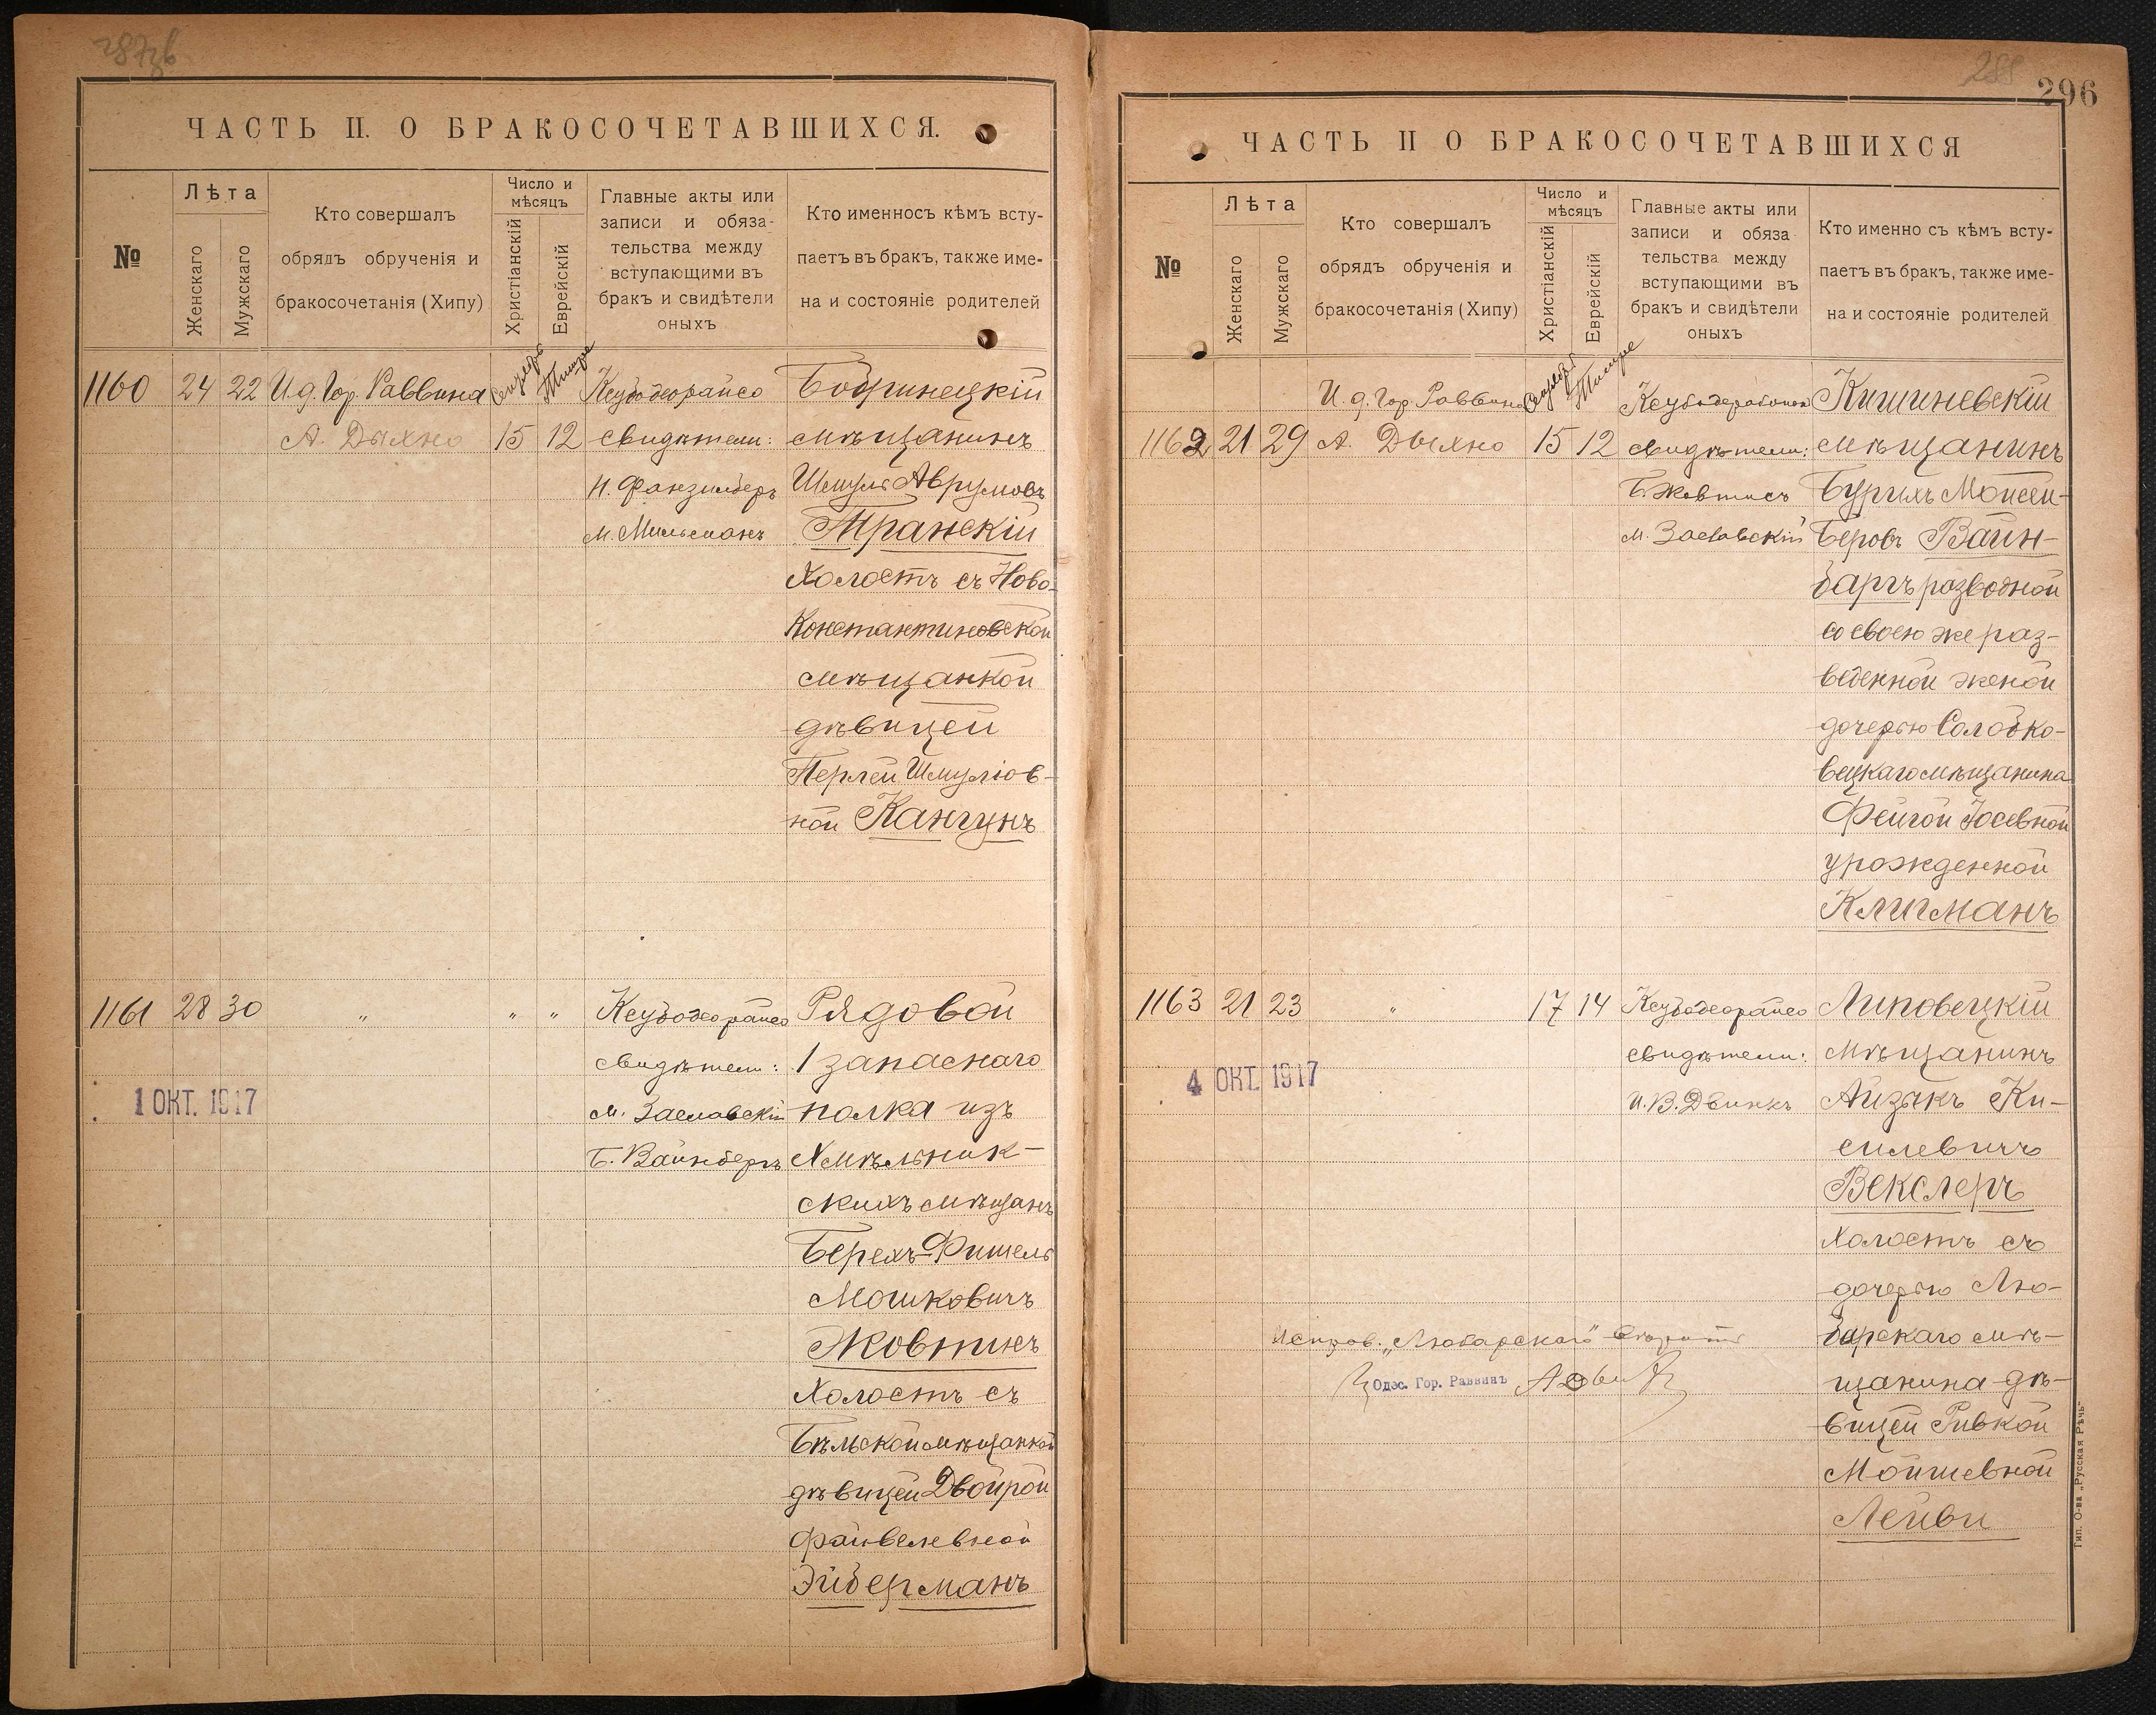 ЧАСТЬ II. О БРАКОСОЧЕТАВШИХСЯ.
№
Лѣта
Женскаго
Мужскаго
Кто совершалъ
обрядъ обрученія и
бракосочетанія (Хипу)
Число и
мѣсяцъ
Христіанскій
Еврейскій
Главные акты или
записи и обяза-
тельства между
вступающими въ
бракъ и свидѣтели
оныхъ
Кто именносъ кѣмъ всту-
паетъ въ бракъ, также име-
на и состояніе родителей
1160 24 22 И.д. Гор. Раввина
А. Дыхно 15 12
свидѣтели:
М. Мильманъ
Бобринецкій
мѣщанинъ
Шмуль Аврумовъ
Транскій
Холостъ съ Ново-
Константиновской
мѣщанкой
дѣвицей
Перлей Шмуліов-
ной Кангунъ
1161 28 30 " " "
1 ОКТ. 1917
свидѣтели:
М. Заславскій
Б. Вайнбергъ
Рядовой
1 запаснаго
полка изъ
Хмѣльник-
скихъ мѣщанъ
Берехъ-Фишель
Мошковичъ
Жовтисъ
Холостъ съ
Бѣльской мѣщанкой
дѣвицей Двойрой
Файвелевной
Эйдерманъ
296
288
ЧАСТЬ II О БРАКОСОЧЕТАВШИХСЯ
№
Лѣта
Женскаго
Мужскаго
Кто совершалъ
обрядъ обрученія и
бракосочетанія (Хипу)
Число и
мѣсяцъ
Христіанскій
Еврейскій
Главные акты или
записи и обяза
тельства между
вступающими въ
бракъ и свидѣтели
оныхъ
Кто именно съ кѣмъ всту-
паетъ въ бракъ, также име-
на и состояніе родителей
И.д. Гор. Раввина
1162 21 29 А. Дыхно 15 12
свидѣтели:
Б. Жовтисъ
М. Заславскій
Кишиневскій
мѣщанинъ
Бурихъ Мойсей-
Беровъ Вайн-
баргъ разводной
со своею же раз-
веденной женой
дочерью Солобко-
вецкаго мѣщанина
Фейгой Іосевной
урожденной
Клигманъ
1163 21 23 " 17 14
4 ОКТ. 1917
свидѣтели:
И.В. Двинкъ
Липовецкій
мѣщанинъ
Айзикъ Ки-
силевичъ
Векслеръ
Холостъ съ
дочерью Лю-
барскаго мѣ-
щанина дѣ-
вицей Ривкой
Мойшевной
Лейви
Испров. „Любарскаго"
Одес. Гор. Раввинъ
Тип. О-ва „Русская Рѣчь"